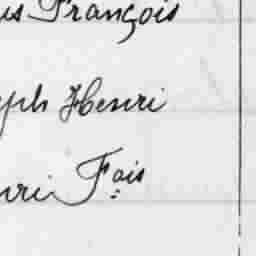 us François
eph Henri
nri Fois